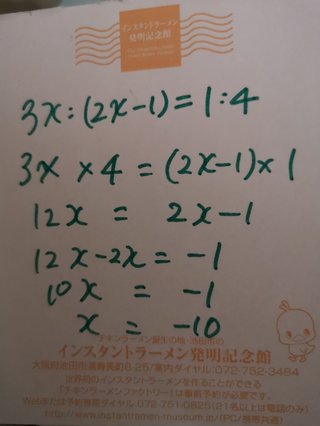 インスタントラーメン
発明記念館
3x:(2x-1)=1:4
3x×4=(2x-1)×1
12x=2x-1
12x-2x=-1
10x=-1
x=-10
チキンラーメン誕生の地・池田市の
インスタントラーメン発明記念館
大阪府池田市満寿美町8-25/案内ダイヤル:072-752-3484
世界初のインスタントラーメンを作ることができる
「チキンラーメンファクトリー」は事前予約が必要です。
Webまたは予約専用ダイヤル:072-751-0825(21名以上は電話のみ)
http://www.instantramen-museum.jp/(PC/携帯共通)